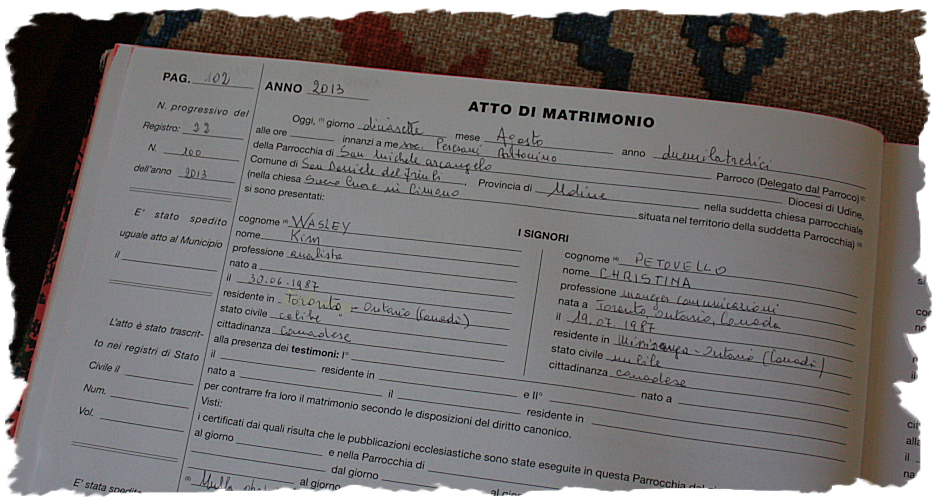 PAG. 102
ANNO 2013
N. progressivo del
Registro: 22
N. 100
dell'anno 2013
E' stato spedito
uguale atto al Municipio
il
L'atto è stato trascrit-
to nei registri di Stato
Civile il
Num.
Vol.
E' stata spedita
ATTO DI MATRIMONIO
Oggi, (1) giorno diciasette mese Agosto anno duemilatredici
alle ore innanzi a me Persani Antonino Parroco (Delegato dal Parroco) (2)
della Parrocchia di San Michele arcangelo Diocesi di Udine,
Comune di San Daniele del friuli Provincia di Udine nella suddetta chiesa parrocchiale
(nella chiesa Sacro Cuore in Cimano situata nel territorio della suddetta Parrocchia) (3)
si sono presentati:
I SIGNORI
cognome (4) WASLEY
nome Kim
professione analista
nato a
il 30.06.1987
residente in Toronto - Ontario (Canada)
stato civile celibe
cittadinanza canadese
cognome (4) PETOVELLO
nome CHRISTINA
professione manager comunicazioni
nata a Toronto, Ontario, Canada
il 19.07.1987
residente in - Ontario (Canada)
stato civile nubile
cittadinanza canadese
alla presenza dei testimoni: I°
nato a
il residente in e II° nato a
il residente in
per contrarre fra loro il matrimonio secondo le disposizioni del diritto canonico.
Visti:
i certificati dai quali risulta che le pubblicazioni ecclesiastiche sono state eseguite in questa Parrocchia dal
al giorno e nella Parrocchia di
dal giorno al giorno
Nulla
al giorno